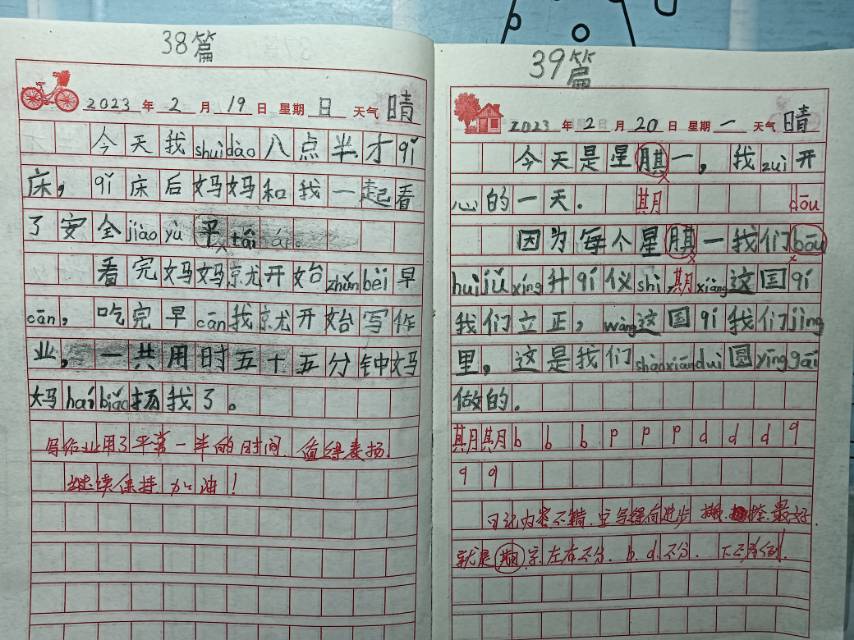 38篇
2023 年 2 月 19 日 星期 日 天气 晴
今天我shuìdào八点半才qǐ
床，qǐ床后妈妈和我一起看
了安全jiàoyù平tāi
看完妈妈就开始zhǔnbèi早
cān，吃完早cān我就开始写作
业，一共用时五十五分钟妈
妈hái biǎo扬我了。
写作业用了平常一半的时间，值得表扬
继续保持 加油！
39篇
2023 年 2 月 20 日 星期 一 天气 晴
今天是星期一，我zuì开
心的一天．期 dōu
因为每个星期一我们bōu
huì jǔ xíng升qí仪shì，期xiàng这国qí
我们立正，wàng这国qí我们jìng
里，这是我们shàoxiānduì圆yīnggāi
做的．
期期bbbpppdddq
qq
日记内容不错，
就是期字左右不分．b．d不分．